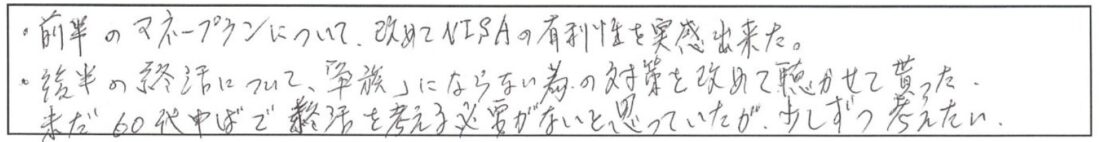 ・前半のマネープランについて、改めてNISAの有利性を実感出来た。
・後半の終活について、「争族」にならない為の対策を改めて聴かせて貰った.
未だ60代中ばで終活を考える必要がないと思っていたが、少しずつ考えたい.